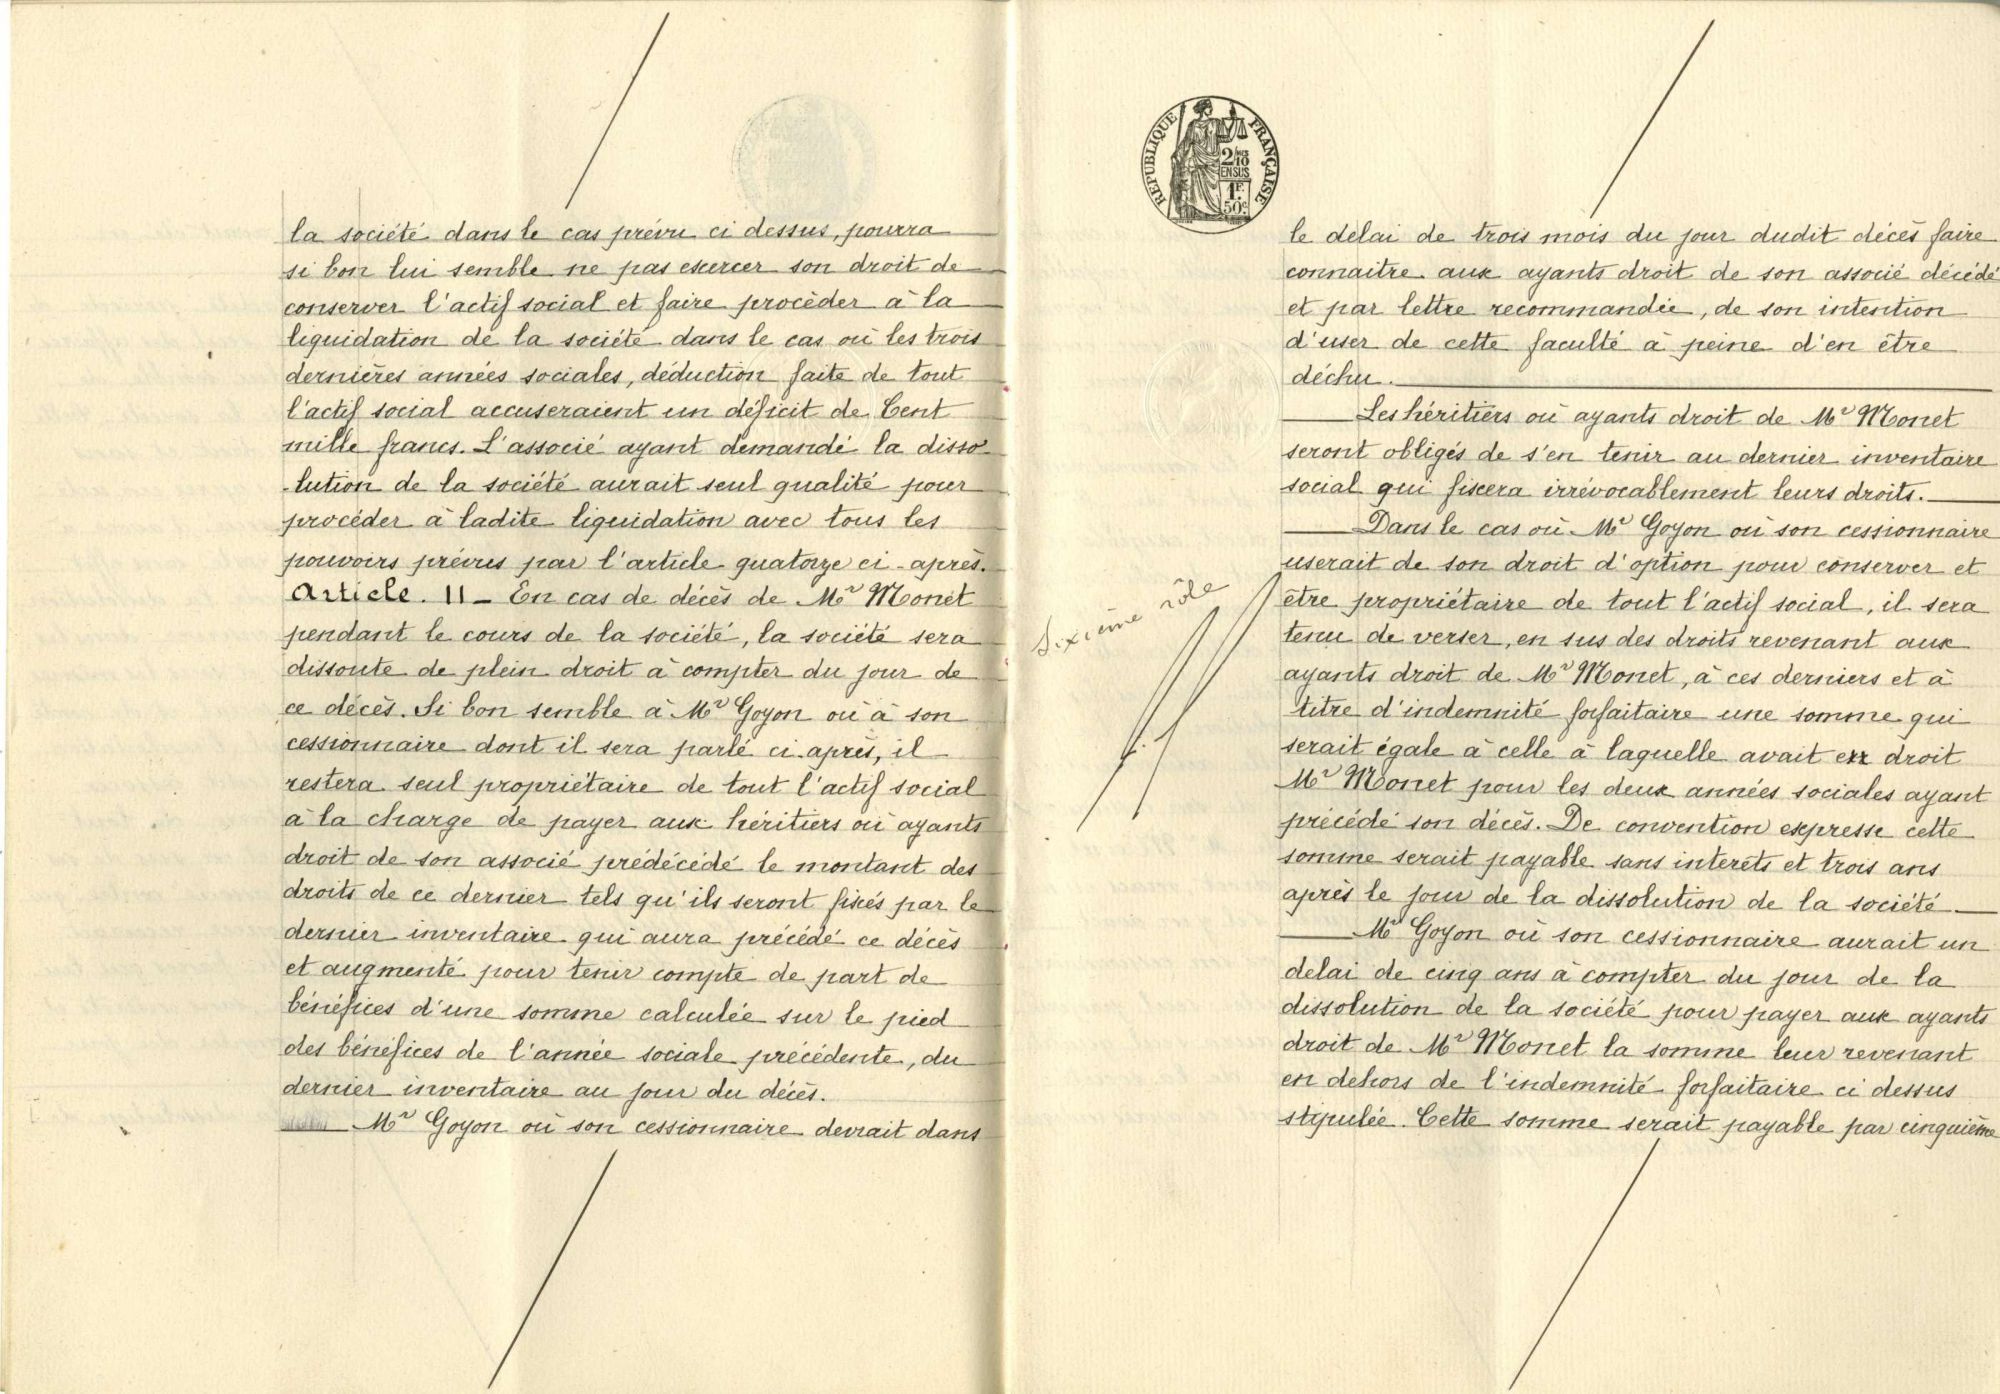 la société dans le cas prévu ci dessus, pourra
si bon lui semble ne pas exercer son droit de
conserver l'actif social et faire procèder à la
liquidation de la société dans le cas où les trois
dernières années sociales, déduction faite de tout
l'actif social accuseraient un déficit de Cent
mille francs. L'associé ayant demandé la disso
-lution de la société aurait seul qualité pour
procéder à ladite liquidation avec tous les
pouvoirs prévus par l'article quatorze ci-après.
Article. 11 _ En cas de décès de Mr Monet
pendant le cours de la société, la société sera
dissoute de plein droit à compter du jour de
ce décès. Si bon semble à Mr Goyon ou à son
cessionnaire dont il sera parlé ci-après, il
restera seul propriétaire de tout l'actif social
à la charge de payer aux héritiers où ayants
droit de son associé prédécédé le montant des
droits de ce dernier tels qu'ils seront fixés par le
dernier inventaire qui aura précédé ce décès
et augmenté pour tenir compte de part de
bénéfices d'une somme calculée sur le pied
des bénéfices de l'année sociale précédente, du
dernier inventaire au jour du décès.
Mr Goyon où son cessionnaire devrait dans
RÉPUBLIQUE FRANÇAISE
2/10 MES
EN SUS
1F.
50c.
le délai de trois mois du jour dudit décès faire
connaitre aux ayants droit de son associé décédé
et par lettre recommandée, de son intention
d'user de cette faculté à peine d'en être
déchu.
Les héritiers où ayants droit de Mr Monet
seront obligés de s'en tenir au dernier inventaire
social qui fixera irrévocablement leurs droits.
Dans le cas où Mr Goyon où son cessionnaire
userait de son droit d'option pour conserver et
Sixième rôle
être propriétaire de tout l'actif social, il sera
tenu de verser, en sus des droits revenant aux
ayants droit de Mr Monet, à ces derniers et à
titre d'indemnité forfaitaire une somme qui
serait égale à celle à laquelle avait eu droit
Mr Monet pour les deux années sociales ayant
précédé son décès. De convention expresse cette
somme serait payable sans interets et trois ans
après le jour de la dissolution de la société
Mr Goyon où son cessionnaire aurait un
delai de cinq ans à compter du jour de la
dissolution de la société pour payer aux ayants
droit de Mr Monet la somme leur revenant
en dehors de l'indemnité forfaitaire ci dessus
stipulée. Cette somme serait payable par cinquième